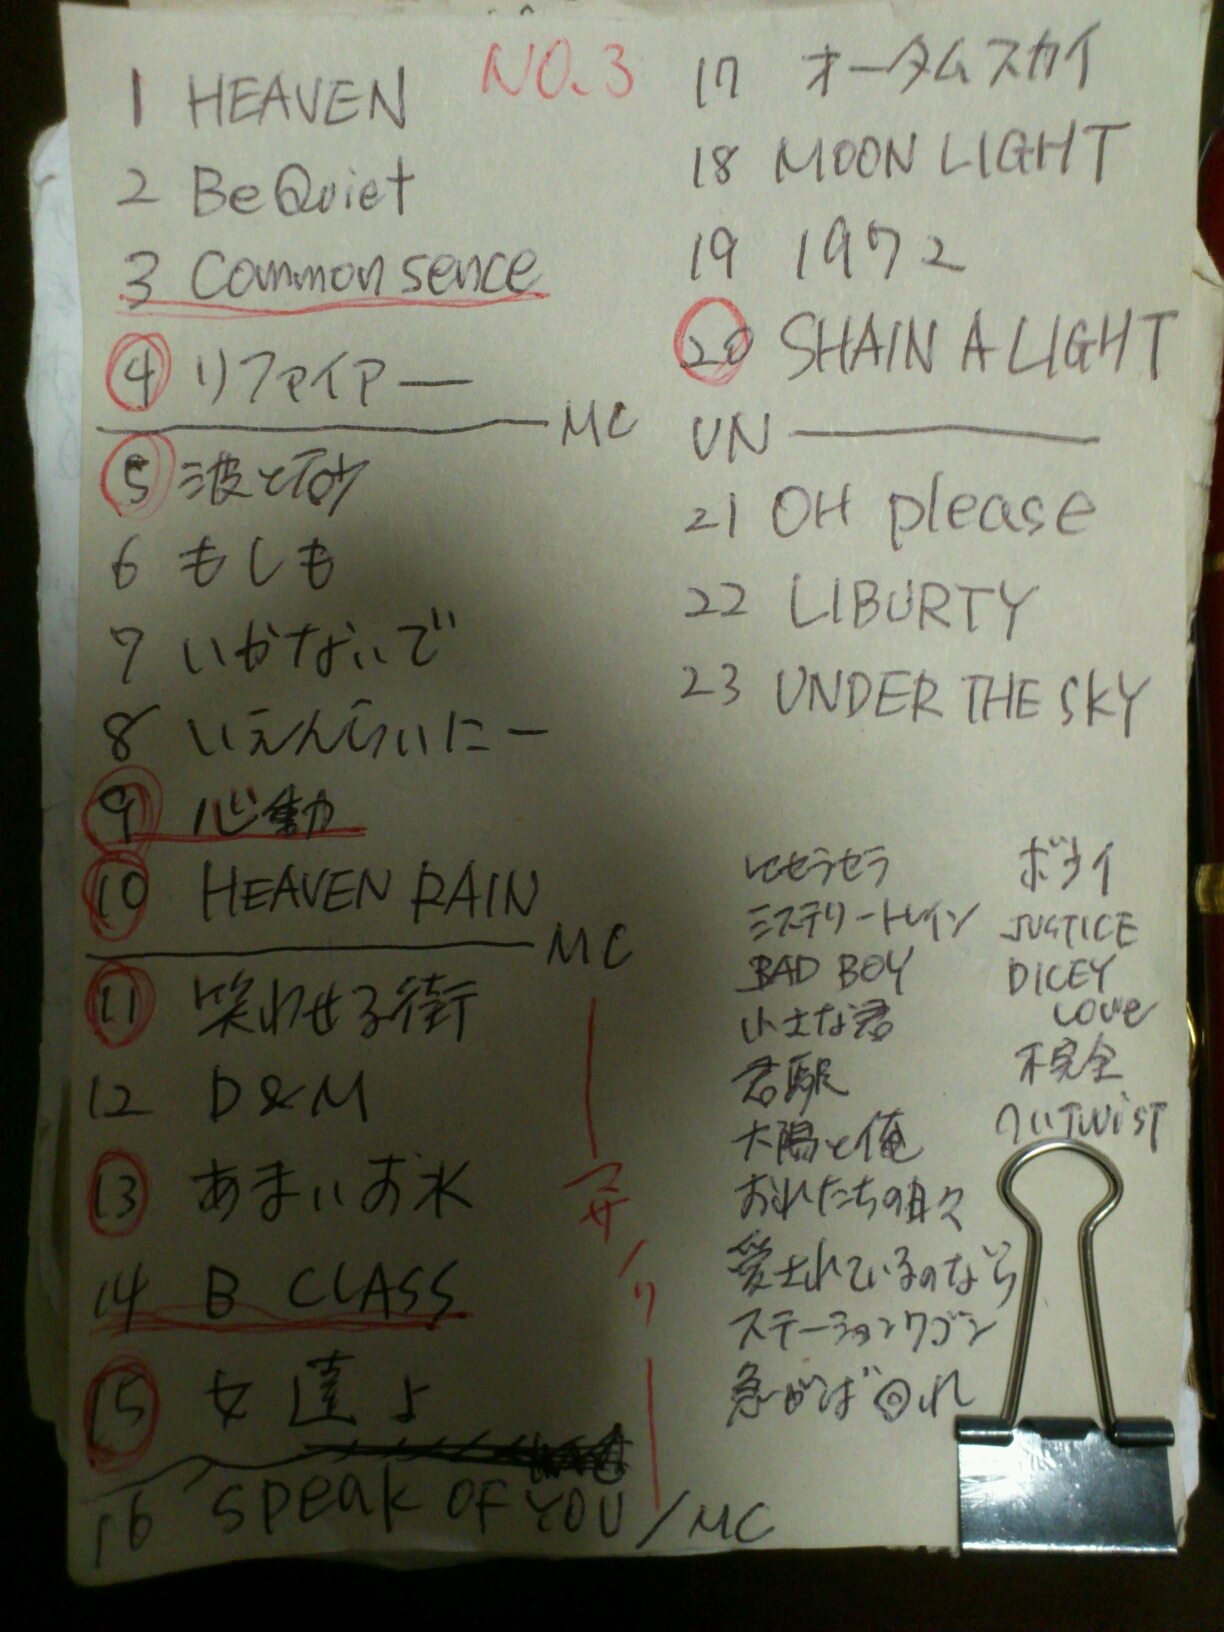 NO.3
1 HEAVEN
2 Be Quiet
3 Common sence
4 リファイアー
MC
5 波と砂
6 もしも
7 いかないで
8 いえんらいにー
9 心動
10 HEAVEN RAIN
MC
11 笑わせる街
12 D&M
13 あまいお水
14 B CLASS
15 女達よ
16 speak OF YOU / MC
17 オータムスカイ
18 MOON LIGHT
19 1972
20 SHAIN A LIGHT
UN
21 OH please
22 LIBURTY
23 UNDER THE SKY
ミステリートレイン
BAD BOY
小さな君
君駅
太陽と俺
おれたちの日々
愛されているのなら
ステーションワゴン
急がば回れ
JUSTICE
DICEY
Love
不完全
TWIST